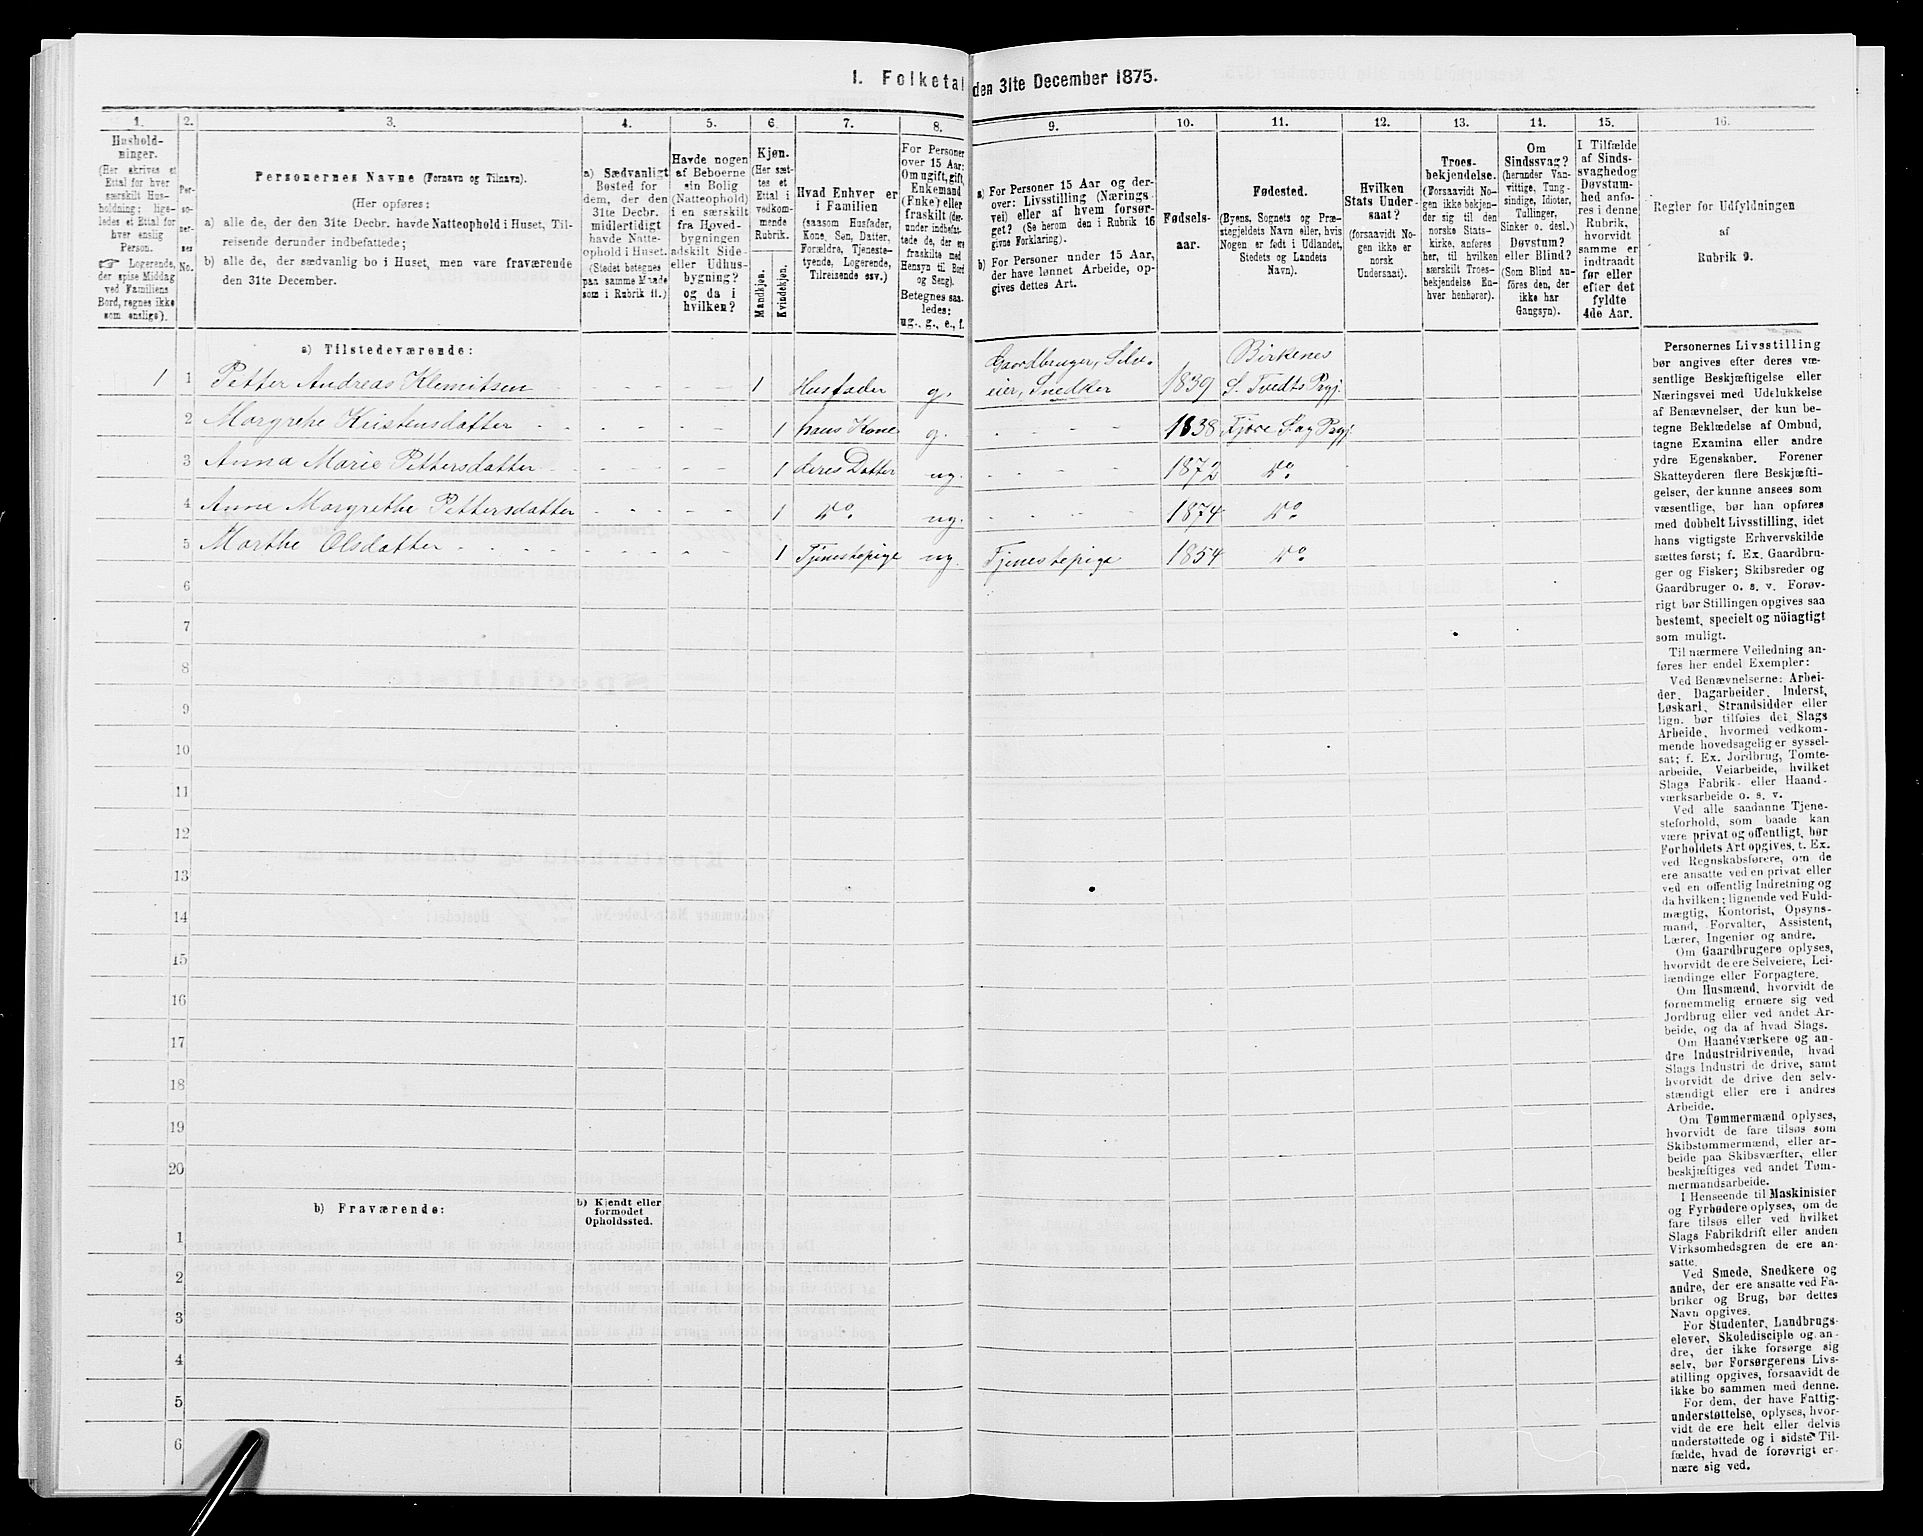 I. Folketal den 31te December 1875.
1.
Hushold-
ninger.
(Her skrives et
Ettal for hver
særskilt Hus-
holdning; lige-
ledes et Ettal for
hver enslig
Person.
Logerende,
der spise Middag
ved Familiens
Bord, regnes ikke
som enslige).
2.
Per-
so-
ner-
nes
No.
3.
Personernes Navne (Fornavn og Tilnavn).
(Her opføres:
a) alle de, der den 31te Decbr. havde Natteophold i Huset, Til-
reisende derunder indbefattede;
b) alle de, der sædvanlig bo i Huset, men vare fraværende
den 31te December.
4.
a) Sædvanligt
Bosted for
dem, der den
31te Decbr.
midlertidigt
havde Natte-
ophold i Huset.
(Stedet betegnes
paa samme Maade
som i Rubrik 11.)
5.
Havde nogen
af Beboerne
sin Bolig
(Natteophold)
i en særskilt
fra Hoved-
bygningen
adskilt Side-
eller Udhus-
bygning?
og da i
hvilken?
6.
Kjøn.
(Her sæt-
tes et
Ettal i
vedkom-
mende
Rubrik.
Mandkjøn.
Kvindekjøn.
7.
Hvad Enhver er
i Familien
(saasom Husfader,
Kone, Søn, Datter,
Forældre, Tjeneste-
tyende, Logerende,
Tilreisende osv.)
8.
For Personer
over 15 Aar:
Om ugift, gift,
Enkemand
(Enke) eller
fraskilt (der-
under indbefat-
tede de, der ere
fraskilte med
Hensyn til Bord
og Seng).
Betegnes saa-
ledes:
ug., g., e., f.
9.
a) For Personer 15 Aar og der-
over: Livsstilling (Nærings-
vei) eller af hvem forsør-
get? (Se herom den i Rubrik 16
givne Forklaring).
b) For Personer under 15 Aar,
der have lønnet Arbeide, op-
gives dettes Art.
10.
Fødsels-
aar.
11.
Fødested.
(Byens, Sognets og Præ-
stegjeldets Navn eller, hvis
Nogen er født i Udlandet,
Stedets og Landets
Navn).
12.
Hvilken
Stats Under-
saat?
(forsaavidt No-
gen ikke er
norsk
Undersaat).
13.
Troes-
bekjendelse.
(Forsaavidt No-
gen ikke bekjen-
der sig til den
norske Stats-
kirke, anføres
her, til hvilken
særskilt Troes-
bekjendelse En-
hver henhører).
14.
Om
Sindssvag?
(herunder Van-
vittige, Tung-
sindige, Idioter,
Tullinger,
Sinker o. desl.)
Døvstum?
eller Blind?
(Som Blind an-
føres den, der
ikke har
Gangsyn).
15.
I Tilfælde
af Sinds-
svaghed og
Døvstum-
hed anfø-
res i denne
Rubrik,
hvorvidt
samme er
indtraadt
før eller
efter det
fyldte
4de Aar.
16.
Regler for Udfyldningen
af
Rubrik 9.
a) Tilstedeværende:
1 1 Petter Andreas Klemitsen 1 Husfader g. Gaardbruger, Selv-
eier, Snedker 1839 Birkenes
S. Tvedts Prgj.
2 Morgrethe Kristensdatter 1 hans Kone g. 1838 Fjære Sag Prgj.
3 Anna Marie Pettersdatter 1 deres Datter ug. 1872 Do
4 Anne Morgrethe Pettersdatter 1 Do ug. 1874 Do
5 Marthe Olsdatter 1 Tjenestepige ug. Tjenestepige 1854 Do
6
7
8
9
10
11
12
13
14
15
16
17
18
19
20
b) Fraværende:
b) Kjendt eller
formodet
Opholdssted.
1
2
3
4
5
6
Personernes Livsstilling
bør angives efter deres væ-
sentlige Beskjæftigelse eller
Næringsvei med Udelukkelse
af Benævnelser, der kun be-
tegne Beklædelse af Ombud,
tagne Examina eller andre
ydre Egenskaber. Forener
Skatteyderen flere Beskjæfti-
gelser, der kunne ansees som
væsentlige, bør han opføres
med dobbelt Livsstilling, idet
hans vigtigste Erhvervskilde
sættes først; f. Ex. Gaardbru-
ger og Fisker; Skibsreder og
Gaardbruger o. s. v. Forøv-
rigt bør Stillingen opgives saa
bestemt, specielt og nöiagtigt
som muligt.
Til nærmere Veiledning an-
føres her endel Exempler:
Ved Benævnelserne: Arbei-
der, Dagarbeider, Inderst,
Løskarl, Strandsidder eller
lign. bør tilføies det Slags
Arbeide, hvormed vedkom-
mende hovedsagelig er syssel-
sat; f. Ex. Jordbrug, Tomte-
arbeide, Veiarbeide, hvilket
Slags Fabrik- eller Haand-
værksarbeide o. s. v.
Ved alle saadanne Tjene-
steforhold, som baade kan
være privat og offentligt, bør
Forholdets Art opgives, t. Ex.
ved Regnskabsførere, om de
ere ansatte ved en privat eller
ved en offentlig Indretning og
da hvilken; lignende ved Fuld-
mægtig, Kontorist, Opsyns-
mand, Forvalter, Assistent,
Lærer, Ingeniør og andre.
Om Gaardbrugere oplyses,
hvorvidt de ere Selveiere, Lei-
lændinge eller Forpagtere.
Om Husmænd, hvorvidt de
fornemmelig ernære sig ved
Jordbrug eller ved andet Ar-
beide, og da af hvad Slags.
Om Haandværkere og an-
dre Industridrivende, hvad
Slags Industri de drive, samt
hvorvidt de drive den selv-
stændigt eller ere i andres
Arbeide.
Om Tømmermænd oplyses,
hvorvidt de fare tilsøs som
Skibstømmermænd, eller ar-
beide paa Skibsværfter, eller
beskjæftiges ved andet Tøm-
mermandsarbeide.
I Henseende til Maskinister
og Fyrbødere oplyses, om de
fare tilsøs eller ved hvilket
Slags Fabrikdrift eller anden
Virksomhedsgren de ere an-
satte.
Ved Smede, Snedkere og
andre, der ere ansatte ved Fa-
briker og Brug, bør dettes
Navn opgives.
For Studenter, Landbrugs-
elever, Skoledisciple og an-
dre, der ikke forsørge sig
selv, bør Forsørgerens Livs-
stilling opgives, forsaavidt de
ikke bo sammen med denne.
For dem, der have Fattig-
understøttelse, oplyses, hvor-
vidt de ere helt eller delvis
understøttede og i sidste Til-
fælde, hvad de forøvrigt er-
nære sig ved.